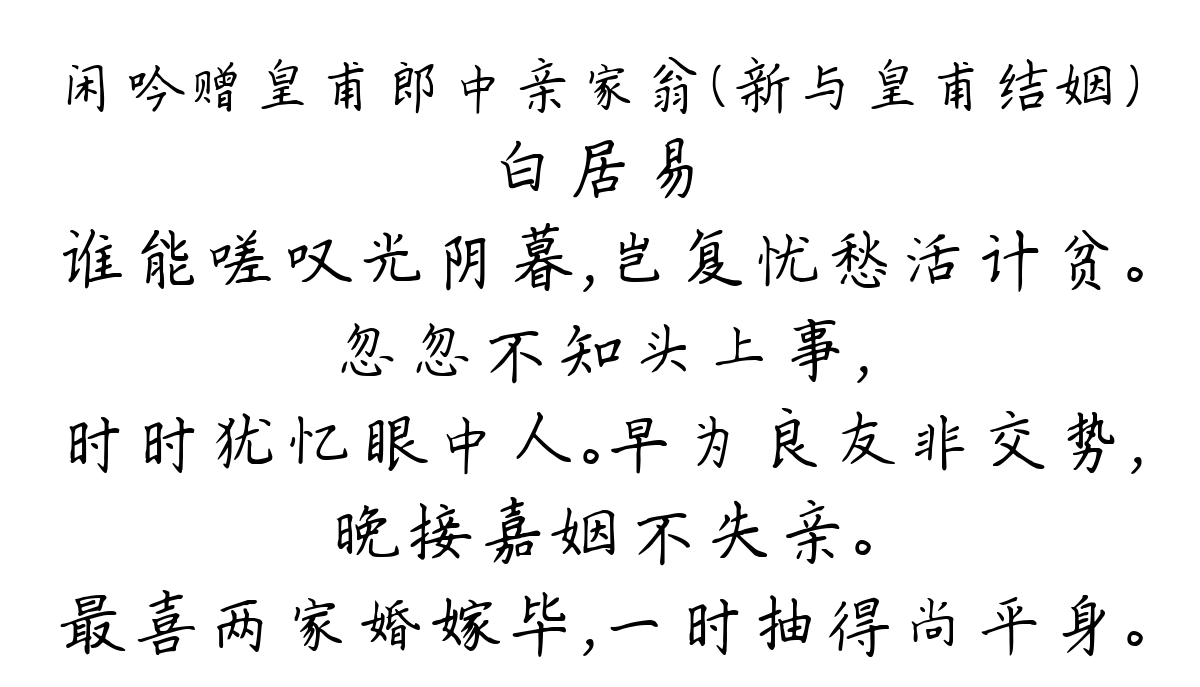 闲吟赠皇甫郎中亲家翁(新与皇甫结姻)
白居易
谁能嗟叹光阴暮,岂复忧愁活计贫。
忽忽不知头上事,
时时犹忆眼中人。早为良友非交势,
晚接嘉姻不失亲。
最喜两家婚嫁毕,一时抽得尚平身。